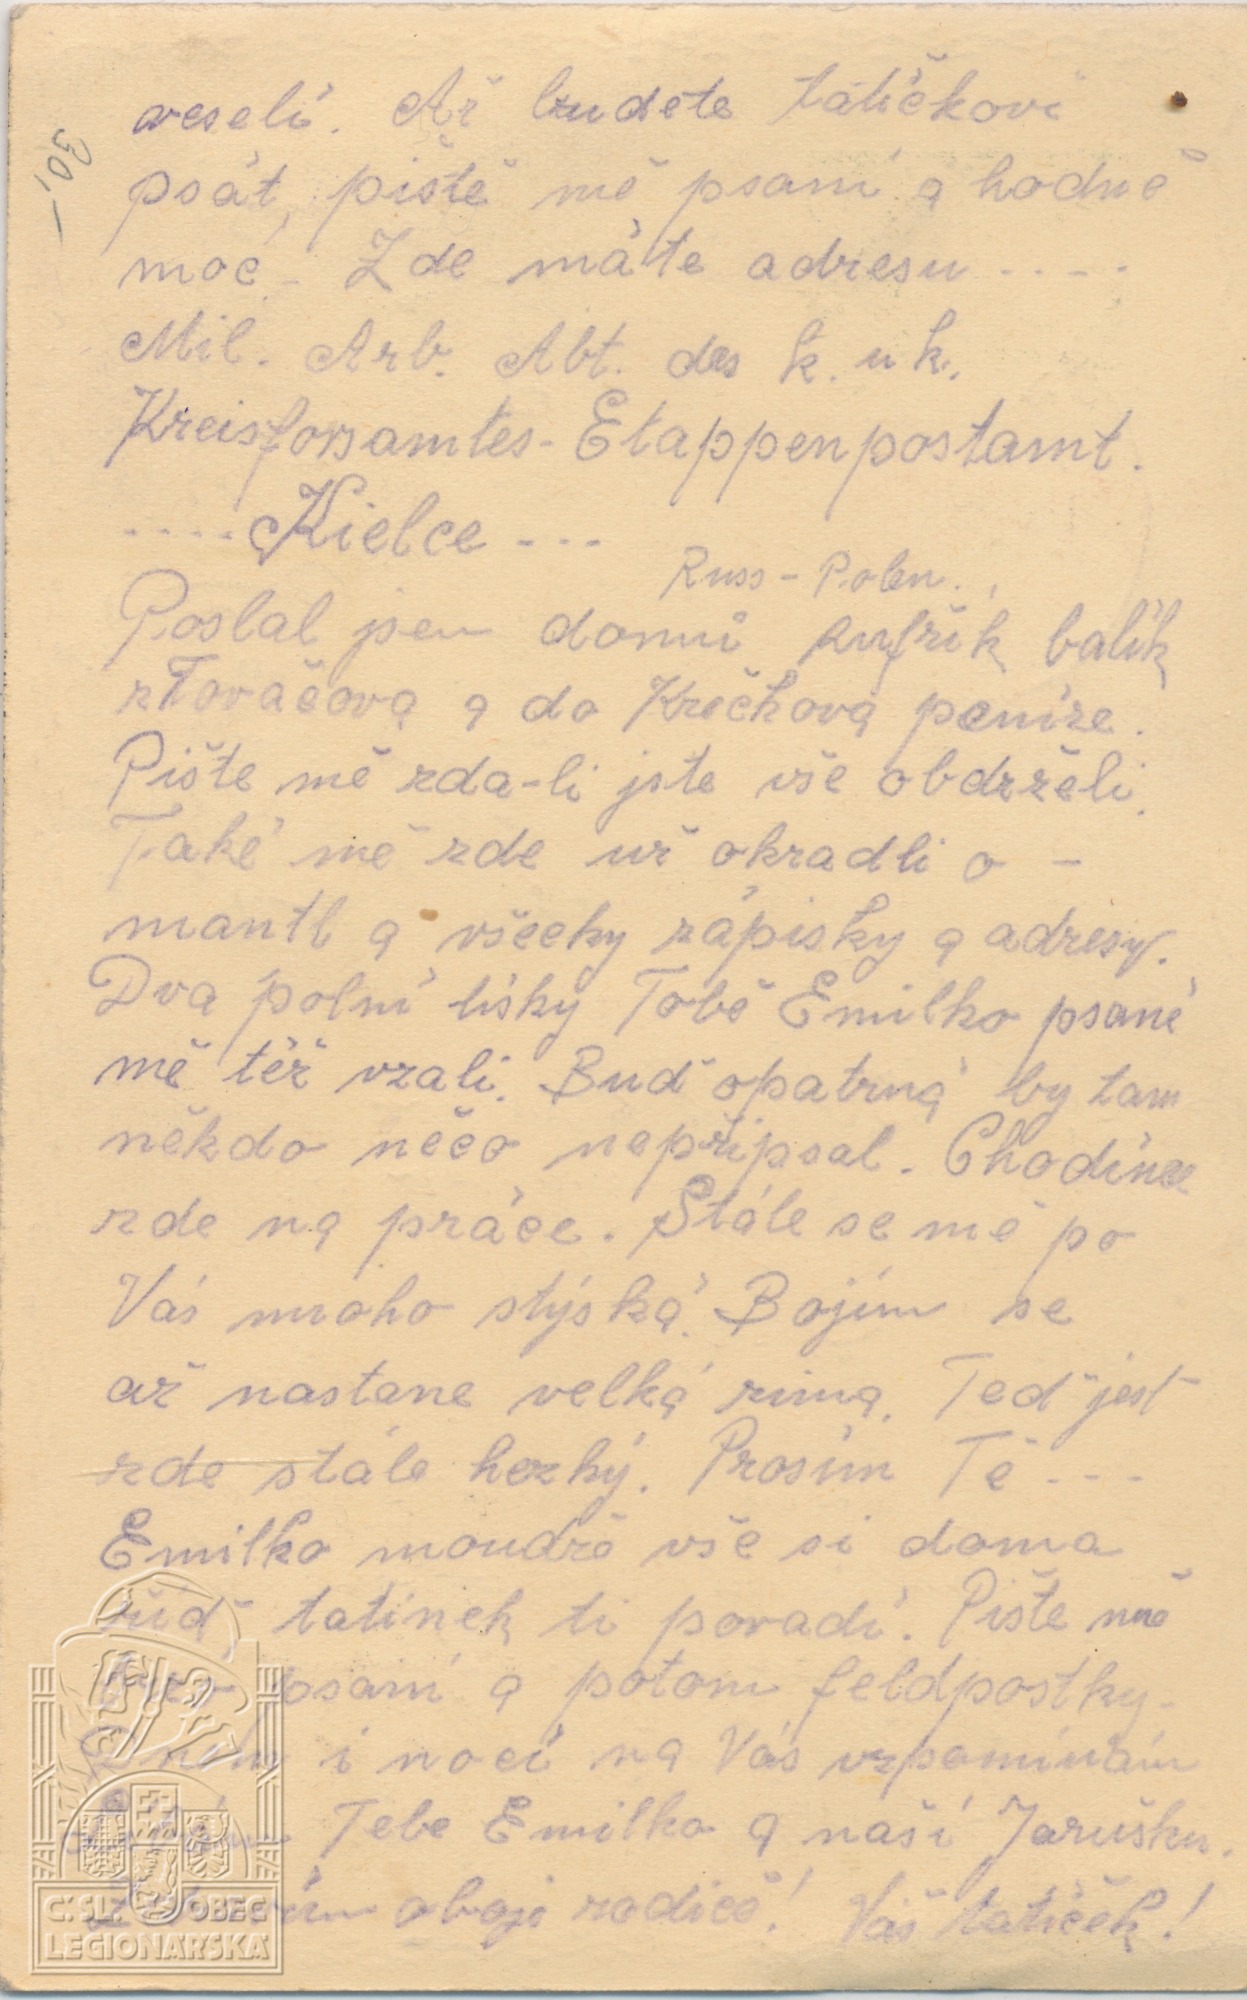 veselí. Až budete tátíčkovi
psát, pište mě psaní a hodně
moc. - Zde máte adresu ....
Mil. Arb. Abt. des k. u k.
Kreisforsamtes - Etappenpostamt.
.... Kielce ...
Russ - Polen.
Poslal jsem domů kufřík balík
z Tovačova a do Krčkova peníze.
Pište mě zda-li jste vše obdrželi.
Také mě zde už okradli o -
mantl a všecky zápisky a adresy.
Dva polní lísky Tobě Emilko psané
mě též vzali. Buď opatrná by tam
někdo něco nepřipsal. Chodíme
zde na práce. Stále se mě po
Vás mnoho stýská. Bojím se
až nastane velká zima. Teď jest
zde stále hezký. Prosím Tě ---
Emilko moudrě vše si doma
řiď, tatínek ti poradí. Pište mě
psaní a potom feldpostky.
i noci na Vás vzpomínám
Tebe Emilko a naší Jarušku.
oboji rodiče! Váš tatíček!
30,-
Č. SL. OBEC
LEGIONÁŘSKÁ